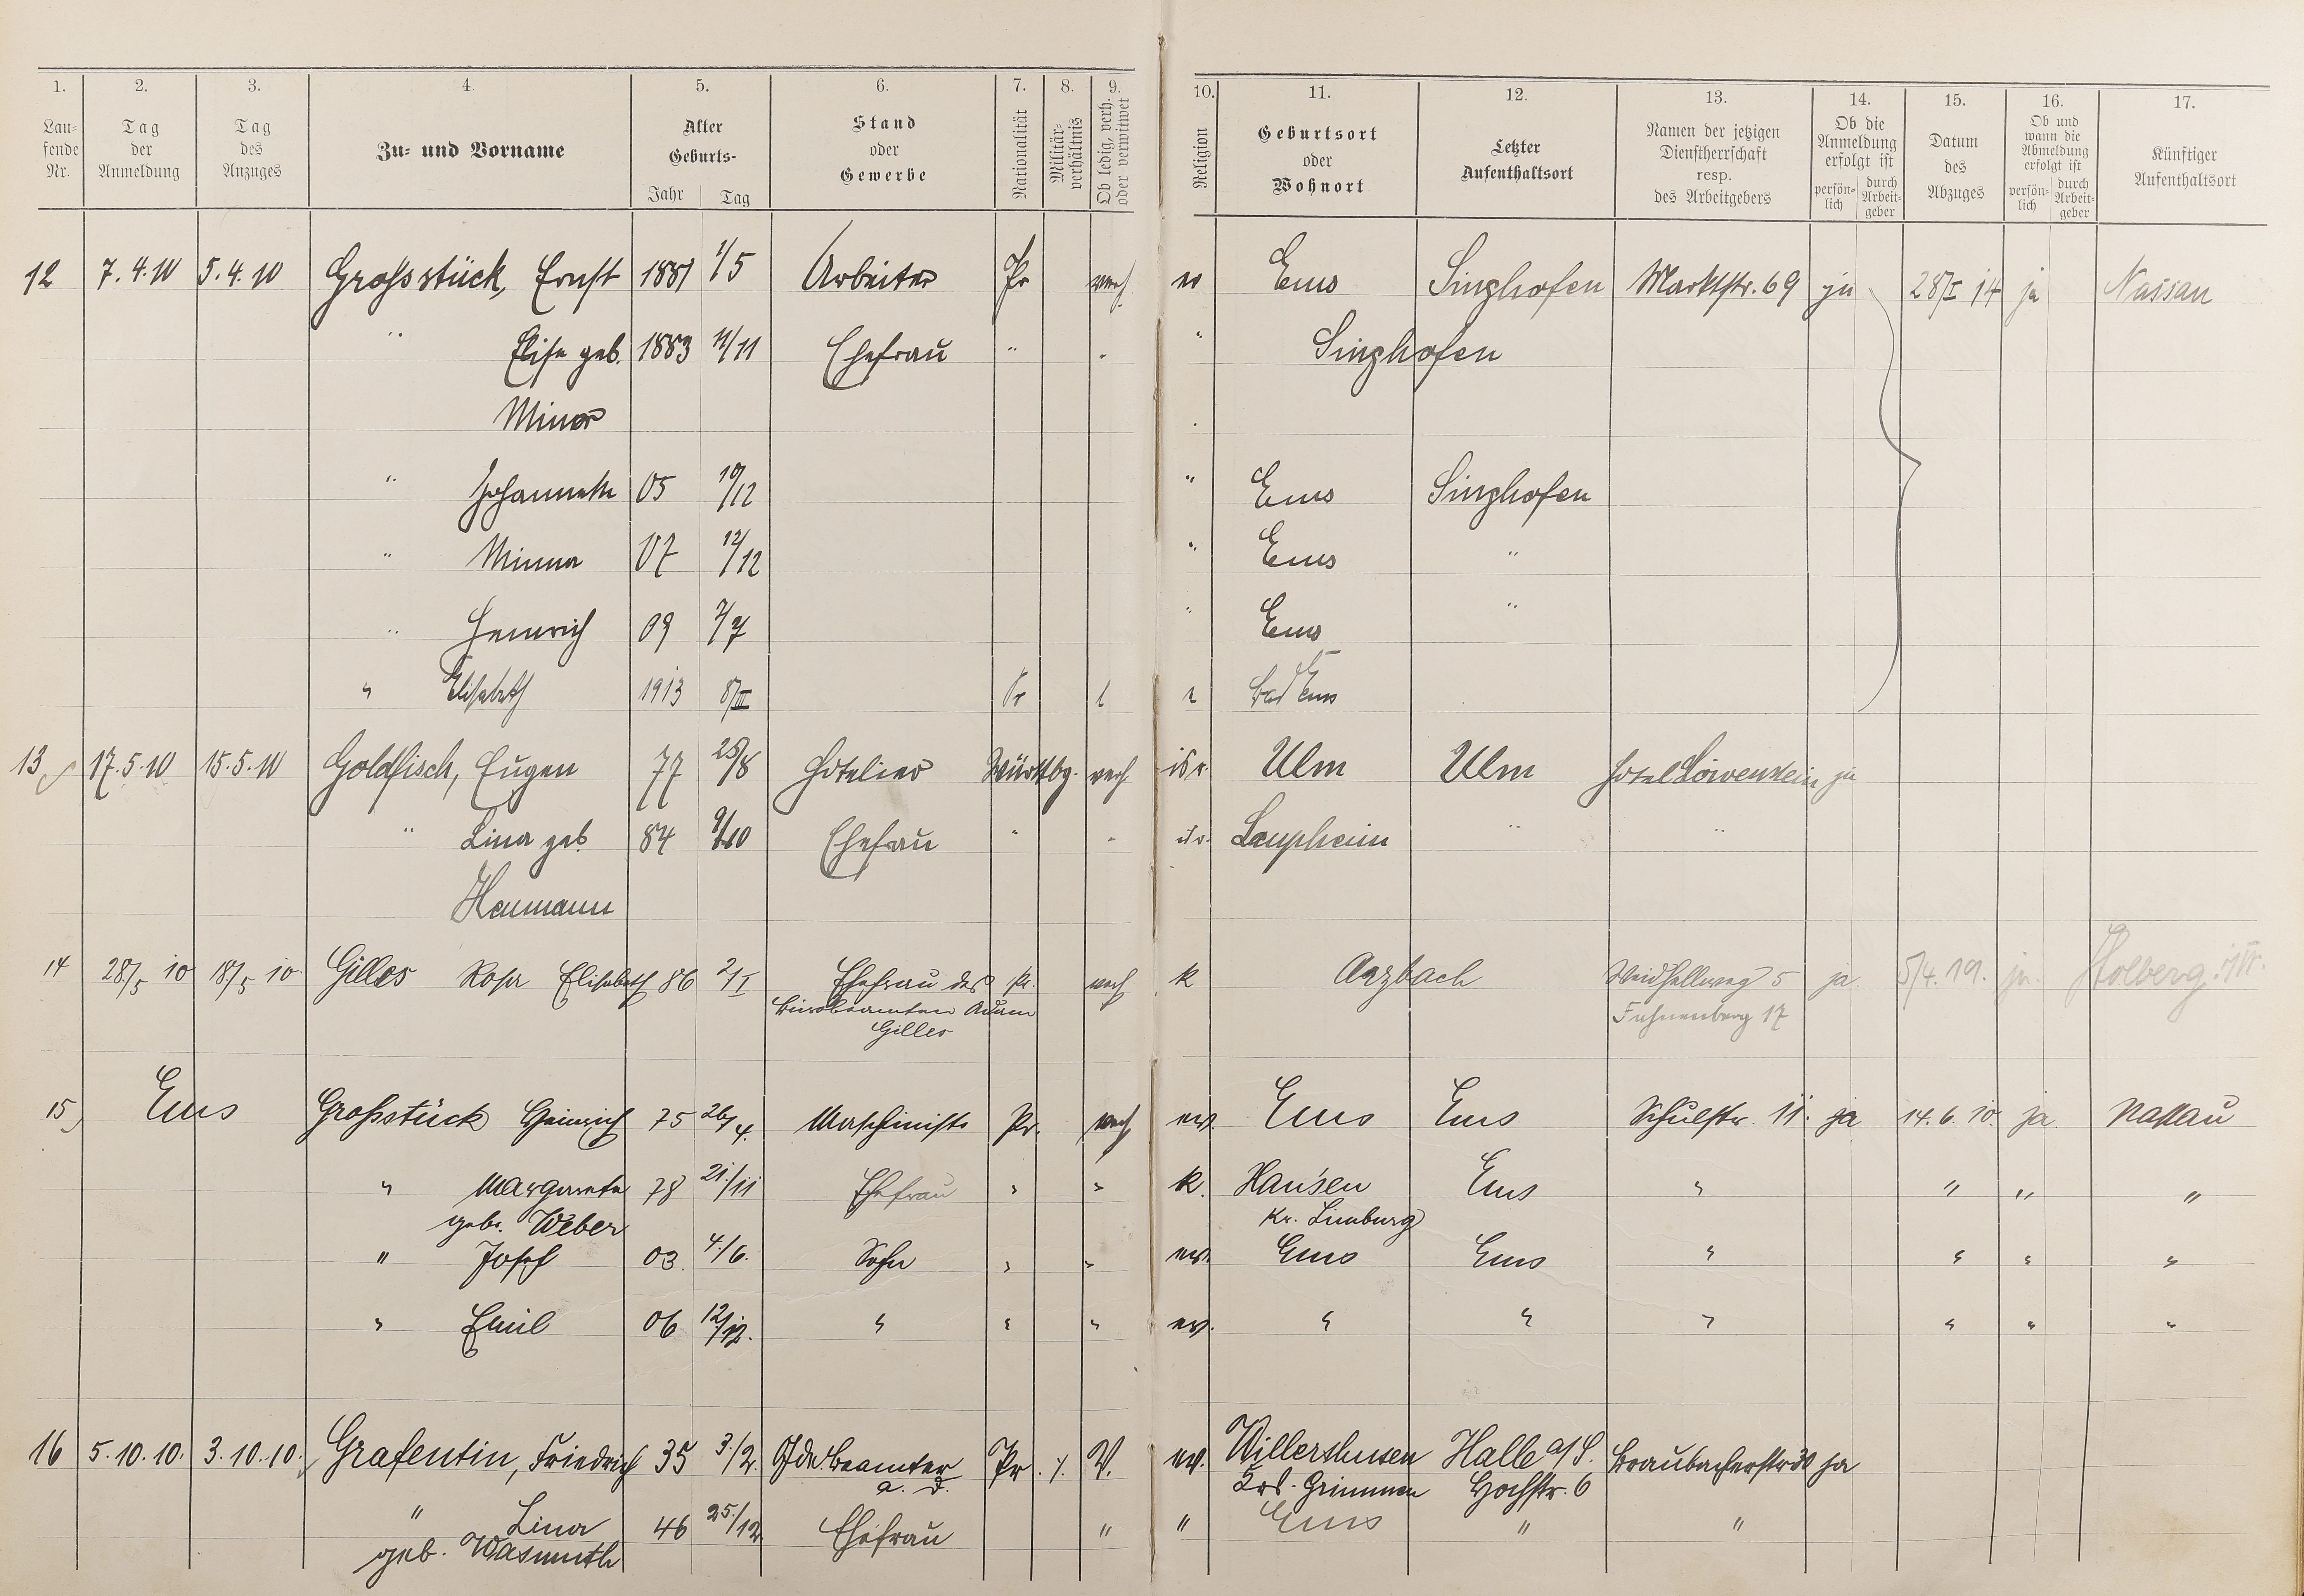 1. 2. 3. 4. 5. 6. 7. 8. 9. 10. 11. 12. 13. 14. 15. 16. 17.
Lau-
fende
Nr.
Tag
der
Anmeldung
Tag
des
Anzuges
Zu- und Vorname
Alter
Geburts-
Jahr Tag
Stand
oder
Gewerbe
Nationalität
Militär-
verhältnis
Ob ledig, verh.
oder verwitwet
Religion
Geburtsort
oder
Wohnort
Letzter
Aufenthaltsort
Namen der jetzigen
Dienstherrschaft
resp.
des Arbeitgebers
Ob die
Anmeldung
erfolgt ist
persön-
lich
durch
Arbeit-
geber
Datum
des
Abzuges
Ob und
wann die
Abmeldung
erfolgt ist
persön-
lich
durch
Arbeit-
geber
Künftiger
Aufenthaltsort
12 7.4.10 5.4.10 Grossstück, Ernst 1881 1/5 Arbeiter Pr verh. ev Ems Singhofen Marktstr. 69 ja 28/I 14 ja Nassau
" Elise geb. 1883 11/11 Ehefrau " " " Singhofen
Minor
" Johannette 05 10/12 " Ems Singhofen
" Minna 07 12/12 " Ems "
" Heinrich 09 7/7 " Ems "
" Elisabeth 1913 8/III Pr l Bad Ems
13 17.5.10 15.5.10 Goldfisch, Eugen 77 25/8 Hotelier Württbg. verh isr. Ulm Ulm Hotel Löwenstein ja
" Lina geb. 84 9/10 Ehefrau " " isr. Laupheim " "
Heumann
14 28/5 10 18/5 10 Gilles Rosa Elisabeth 86 2/I Ehefrau des Pr. verh k Arzbach 5 ja 5/4.19. ja.
Bürobeamten Adam 17
Gilles
15 Ems Grossstück Heinrich 75 26/4. Maschinist Pr. verh ev. Ems Ems Schulstr. 11. ja 14.6.10. ja. Nassau
" Margareta 78 21/11 Ehefrau " " k. Hausen Ems " " " "
geb. Weber Kr. Limburg
" Josef 03. 4/6. Sohn " " ev. Ems Ems " " " "
" Emil 06 12/12. " " " ev. " " " " " "
16 5.10.10. 3.10.10. Grafentin, Friedrich 35 3/2. Beamter Pr. V. ev. Willershusen Halle a/S. Braubacherstr 30 ja
a. D. Krs. Grimmen Hochstr. 6
" Lina 46 25/12 Ehefrau " " Ems " "
geb. Wasmuth